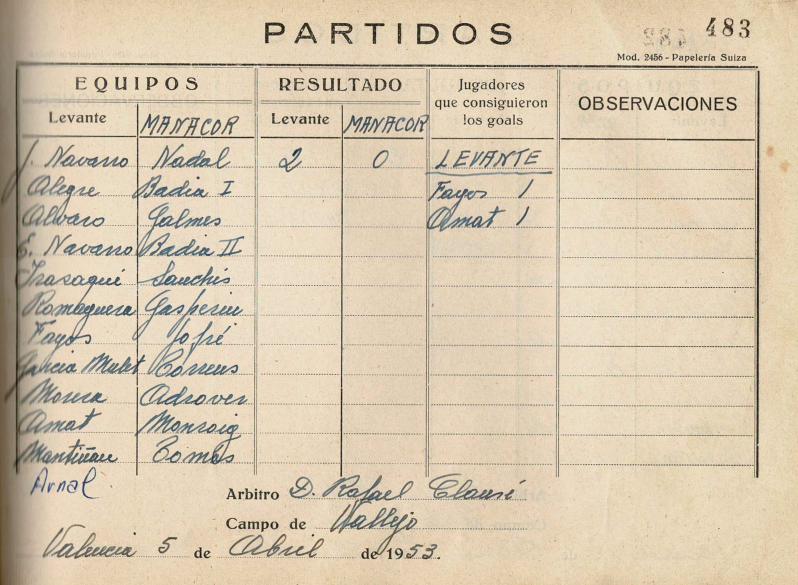 PARTIDOS 483
Mod. 2456 - Papelería Suiza
EQUIPOS RESULTADO Jugadores que consiguieron los goals OBSERVACIONES
Levante MANACOR Levante MANACOR
J. Navarro Nadal 2 0 LEVANTE
Alegre Badia I Fayos 1
Alvaro Galmes Amat 1
E. Navarro Badia II
Irasaqui Sanchis
Romaguera Gasperin
Fayos Jofré
Garcia Mulet Correus
Morera Adrover
Amat Monroig
Mantiñan Tomás
Arnal
Arbitro D. Rafael Clausé
Campo de Vallejo
Valencia 5 de Abril de 1953.